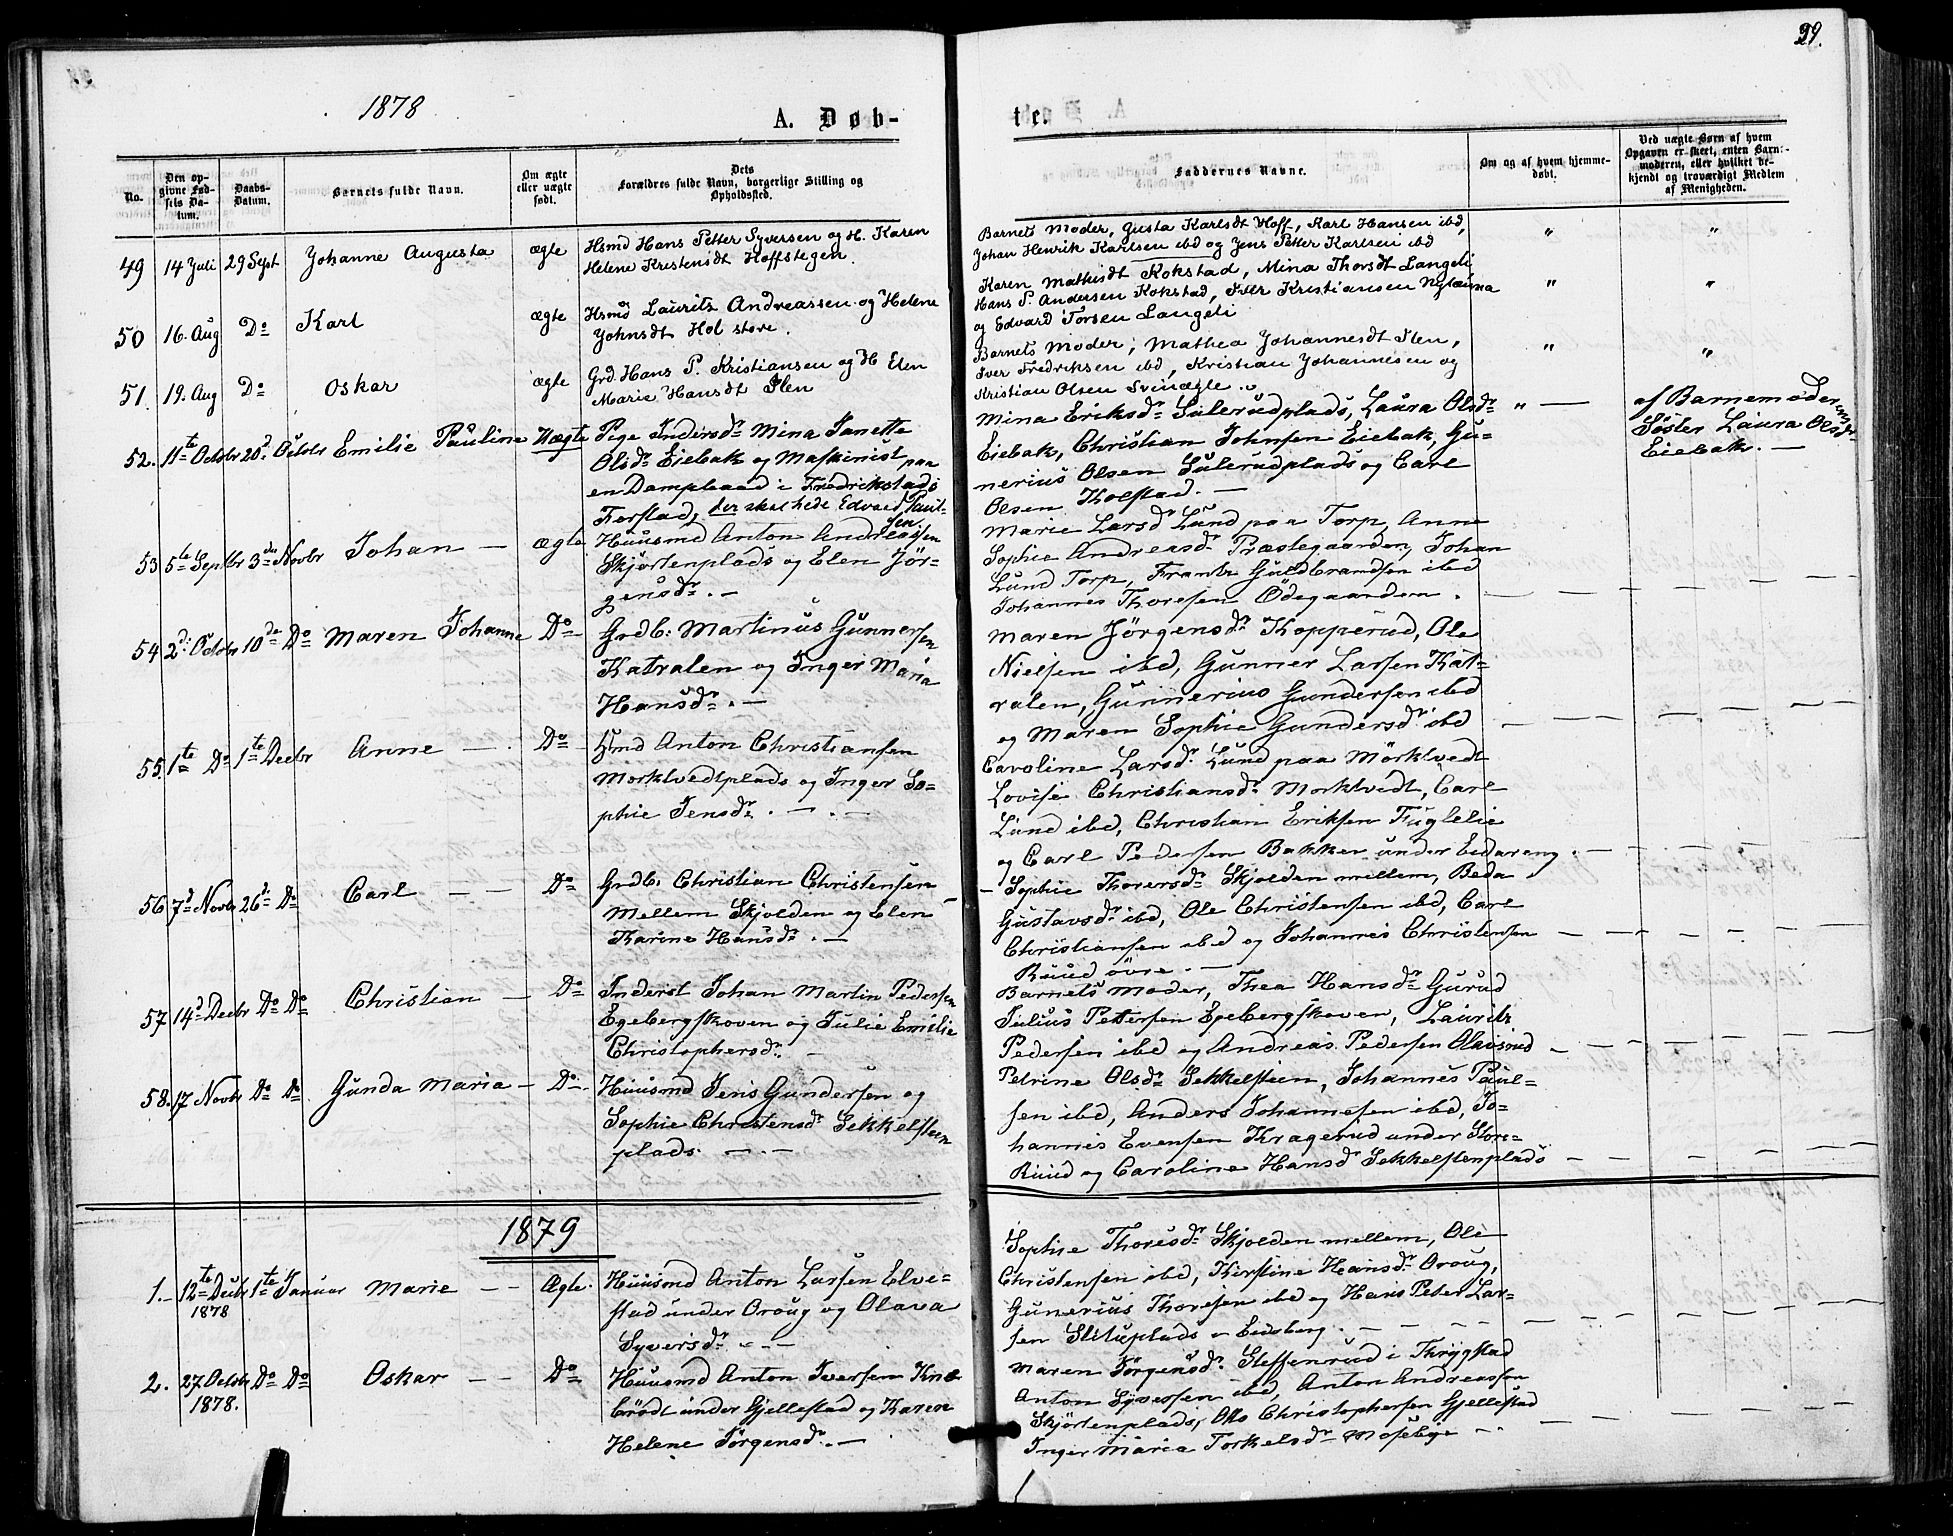 29.
1878
A. Døb-
te.
No.
Den opgivne Fødsels Datum.
Daabs-Datum.
Barnets fulde Navn.
Om ægte eller uægte født.
Dets Forældres fulde Navn, borgerlige Stilling og Opholdssted.
Faddernes Navne.
Om og af hvem hjemmedøbt.
Ved uægte Børn af hvem Opgaven er skeet, enten Barnemoderen, eller hvilket bekjendt og troværdigt Medlem af Menigheden.
49 14 Juli 29 Sept Johanne Augusta ægte
Hsmd Hans Petter Syversen og H. Karen
Helene Kristensdt Hoffstegen.
Barnets Moder, Gusta Karlsdt Hoff, Karl Hansen ibd,
Johan Henrik Karlsen ibd og Jens Petter Karlsen ibd
" "
50 16. Aug Do Karl ægte
Hsmd Laurits Andreassen og Helene
Johnsdt Hol store.
Karen Mathisdt Kokstad, Mina Thorsdt Langeli
Hans P. Andersen Kokstad, Kristiansen
og Edvard Torsen Langeli
" "
51. 19. Aug Do Oskar ægte
Grd. Hans P. Kristiansen og H Elen
Marie Hansdt Slen
Barnets Moder, Mathea Johannesdt Slen,
Iver Fredriksen ibd, Kristian Johannesen og
Kristian Olsen Svinægle.
" "
52. 11te Octobr 20d. Octobr Emilie Pauline Uægte
Pige Indersdr Mina Janette
Olsdr Eiebak og Maskinist paa
en Dampbaad i Fredrikstads
Forstad, der skal hede Edvard Paul-
sen.
Mina Eriksdr Sulerudplads, Laura Olsdr
Eiebak, Christian Johnsen Eiebak, Gu-
nerius Olsen Sulerudplads og Carl
Olsen Kolstad. —
" —
af Barnemoderens
Søster Laura Olsdr
Eiebak. —
53 5te Septbr 3die Novbr Johan — ægte
Huusmd Anton Andreassen
Skjørtenplads og Elen Jør-
gensdr. —
Marie Larsdr Lund paa Torp, Anne
Sophie Andreasdr Præstegaarden, Johan
Lund Torp, Frantz Guldbrandsen ibd
Johannes Thoresen Ødegaarden.
54 2d: Octobr 10de Do Maren Johanne Do
Grdb: Martinus Gunnersen
Katralen og Inger Maria
Hansdr. —
Maren Jørgensdr Kopperud, Ole
Nielsen ibd, Gunner Larsen Kat-
ralen, Gunnerius Gundersen ibd
og Maren Sophie Gundersdr ibd
55 1te Do 1te Decbr Anne — Do
Hmd Anton Christiansen
Morktvedtplads og Inger So-
phie Jensdr. —
Caroline Larsdr Lund paa Mörktvedt
Lovise Christiansdr Morktvedt, Carl
Lund ibd, Christian Eriksen Fuglelie
og Carl Pedersen Bakken under Eidareng.
56 7d Novbr 26d: Do Carl — — Do
Grdb. Christian Christensen
Mellem Skjolden og Elen
Karine Hansdr. —
Sophie Thorersdr Skjolden mellem, Beda
Gustavsdr ibd, Ole Christensen ibd, Carl
Christiansen ibd og Johannes Christensen
Ruud øvre. —
57 14d Decbr Do Do Christian — Do
Inderst Johan Martin Pedersen
Egebergskoven og Julie Emilie
Christophersdr.
Barnets Moder, Thea Hansdr Gurud
Julius Pettersen Egebergskoven, Lauritz
Pedersen ibd og Andreas Pedersen Olavsrud
58. 17 Novbr Do Do Gunda Maria — Do
Huusmd Jens Gundersen og
Sophie Christensdr Sekkelsteen
plads. —
Petrine Olsdr Sekkelsteen, Johannes Paul-
sen ibd, Anders Johannesen ibd, Jo-
hannes Evensen Kragerud under Store-
Ruud og Caroline Hansdr Sekkelstenplads
1879
1. 12te Decbr 1878 1te Januar Marie — — Ægte.
Huusmd Anton Larsen Elve-
stad under Oroug og Olava
Syversdr. —
Sophie Thoresdr Skjolden mellem, Ole
Christensen ibd, Kirstine Hansdr Oroug,
Gunerius Thoresen ibd og Hans Peter Lar-
sen Slituplads Eidsberg.
2. 27 Octobr 1878. Do Do Oskar — — Do
Huusmd Anton Iversen Knæ-
brödt under Gjellestad og Karen
Helene Jørgensdr. —
Maren Jørgensdr. Steffensrud i Thrygstad
Anton Syversen ibd, Anton Andreassen
Skjørtenplads, Otto Christophersen Gjellestad
Inger Maria Torkelsdr Mosebye